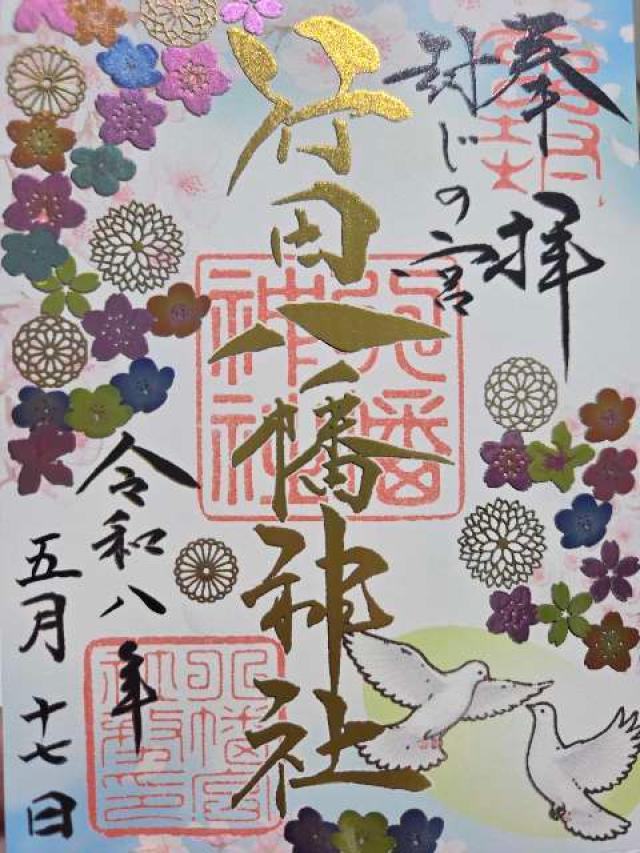 奉拝
封じの宮
行田八幡神社
令和八年
五月十七日